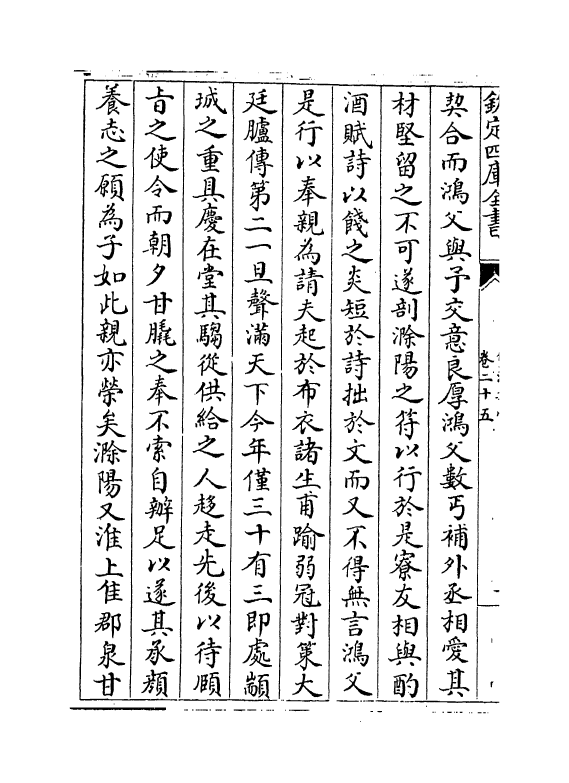 欽定四庫全書
卷二十五
契合而鴻父與予交意良厚鴻父數丐補外丞相愛其
材堅留之不可遂剖滁陽之符以行於是寮友相與酌
酒賦詩以餞之炎短於詩拙於文而又不得無言鴻父
是行以奉親為請夫起於布衣諸生甫踰弱冠對策大
廷臚傳第二一旦聲滿天下今年僅三十有三即處顓
城之重具慶在堂其騶從供給之人趍走先後以待頤
㫖之使令而朝夕甘脆之奉不索自辦足以遂其承顔
養志之願為子如此親亦榮矣滁陽又淮上佳郡泉甘